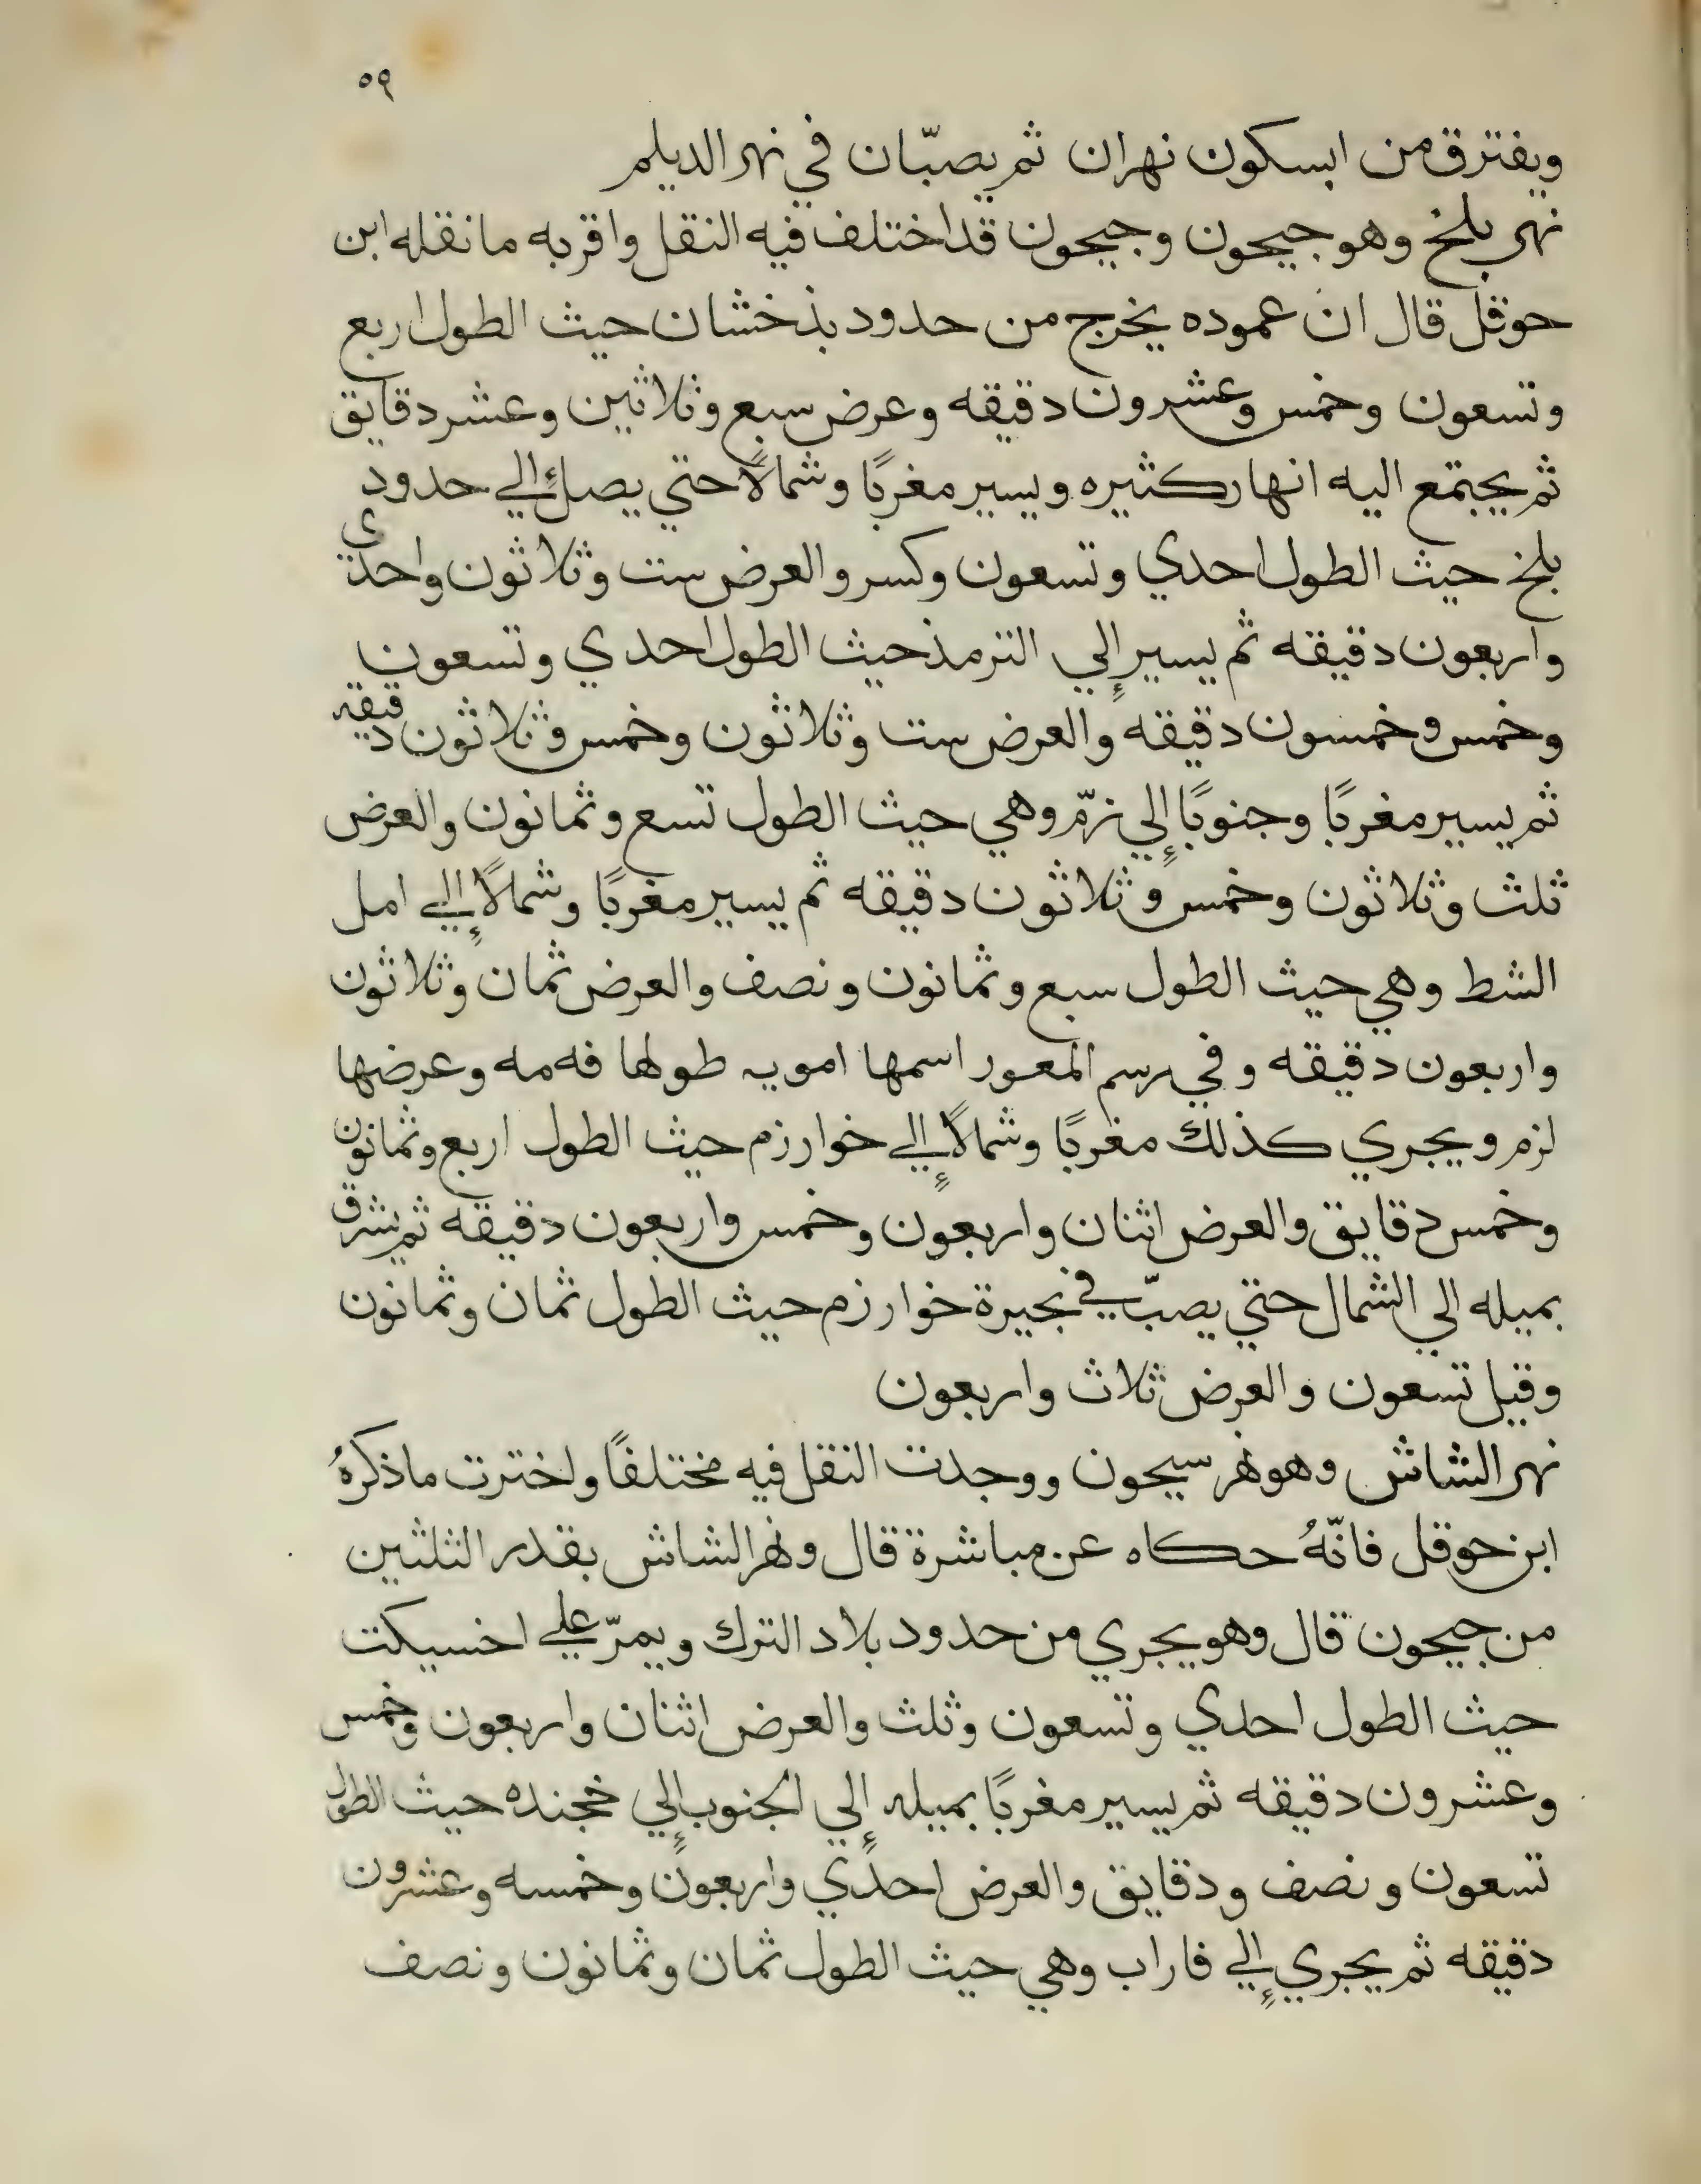 ٥٩
ويفترق من ابسكون نهران ثم يصبّان في نهر الديلم
نهر بلخ وهو جيحون وجيحون قد اختلف فيه النقل واقربه ما نقله ابن
حوقل قال ان عموده يخرج من حدود بذخشان حيث الطول اربع
وتسعون وخمس وعشرون دقيقه وعرض سبع وثلاثين وعشر دقايق
ثم يجتمع اليه انهار كثيره ويسير مغربًا وشمالاً حتي يصل إلي حدود
بلخ حيث الطول احدي وتسعون وكسر والعرض ست وثلاثون واحدي
واربعون دقيقه ثم يسير إلي الترمذ حيث الطول احدي وتسعون
وخمس وخمسون دقيقه والعرض ست وثلاثون وخمس وثلاثون دقيقه
ثم يسير مغربًا وجنوبًا إلي زمّ وهي حيث الطول تسع وثمانون والعرض
ثلث وثلاثون وخمس وثلاثون دقيقه ثم يسير مغربًا وشمالاً إلي امل
الشط وهي حيث الطول سبع وثمانون ونصف والعرض ثمان وثلاثون
واربعون دقيقه وفي رسم المعور اسمها امويه طولها فه مه وعرضها
لزم ويجري كذلك مغربًا وشمالاً إلي خوارزم حيث الطول اربع وثمانون
وخمس دقايق والعرض اثنان واربعون وخمس واربعون دقيقه ثم يشرق
بميله الي الشمال حتي يصبّ في بحيرة خوارزم حيث الطول ثمان وثمانون
وقيل تسعون والعرض ثلاث واربعون
نهر الشاش وهو نهر سيحون ووجدت النقل فيه مختلفًا واخترت ما ذكرهُ
ابن حوقل فانّهُ حكاه عن مباشرة قال ونهر الشاش بقدر الثلثين
من جيحون قال وهو يجري من حدود بلاد الترك ويمرّ علي اخسيكت
حيث الطول احدي وتسعون وثلث والعرض اثنان واربعون وخمس
وعشرون دقيقه ثم يسير مغربًا بميله إلي الجنوب إلي خجنده حيث الطول
تسعون ونصف ودقايق والعرض احدي واربعون وخمسه وعشرون
دقيقه ثم يجري إلي فاراب وهي حيث الطول ثمان وثمانون ونصف